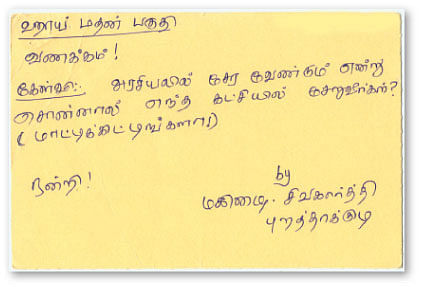 ஹாய் மதன் பகுதி
வணக்கம்!
கேள்வி:- அரசியலில் சேர வேண்டும் என்று
சொன்னால் எந்த கட்சியில் சேருவீர்கள்?
(மாட்டிக்கிட்டிங்களா!)
நன்றி!
by
மணிமுடி. சிவகார்த்தி
புறத்தாக்குடி